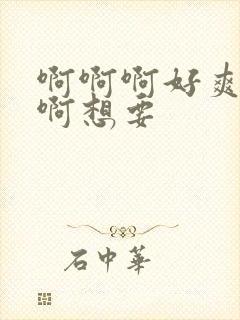 啊啊啊好爽
啊想要
石中華